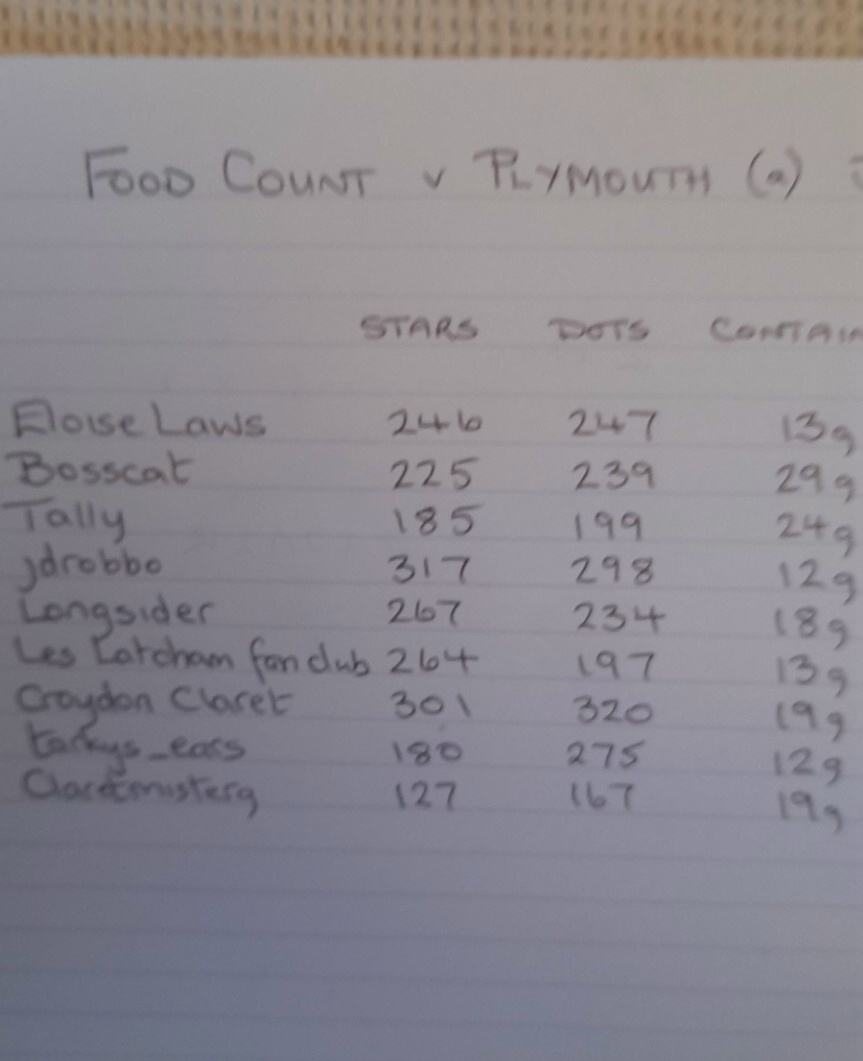 FOOD COUNT v PLYMOUTH (a)
STARS DOTS CONTAIN
Eloise Laws 246 247 13g
Bosscat 225 239 29g
Tally 185 199 24g
jdrobbo 317 298 12g
Longsider 267 234 18g
Les Latcham fan club 264 197 13g
Croydon Claret 301 320 19g
tarkys_ears 180 275 12g
Claretmisterg 127 167 19g